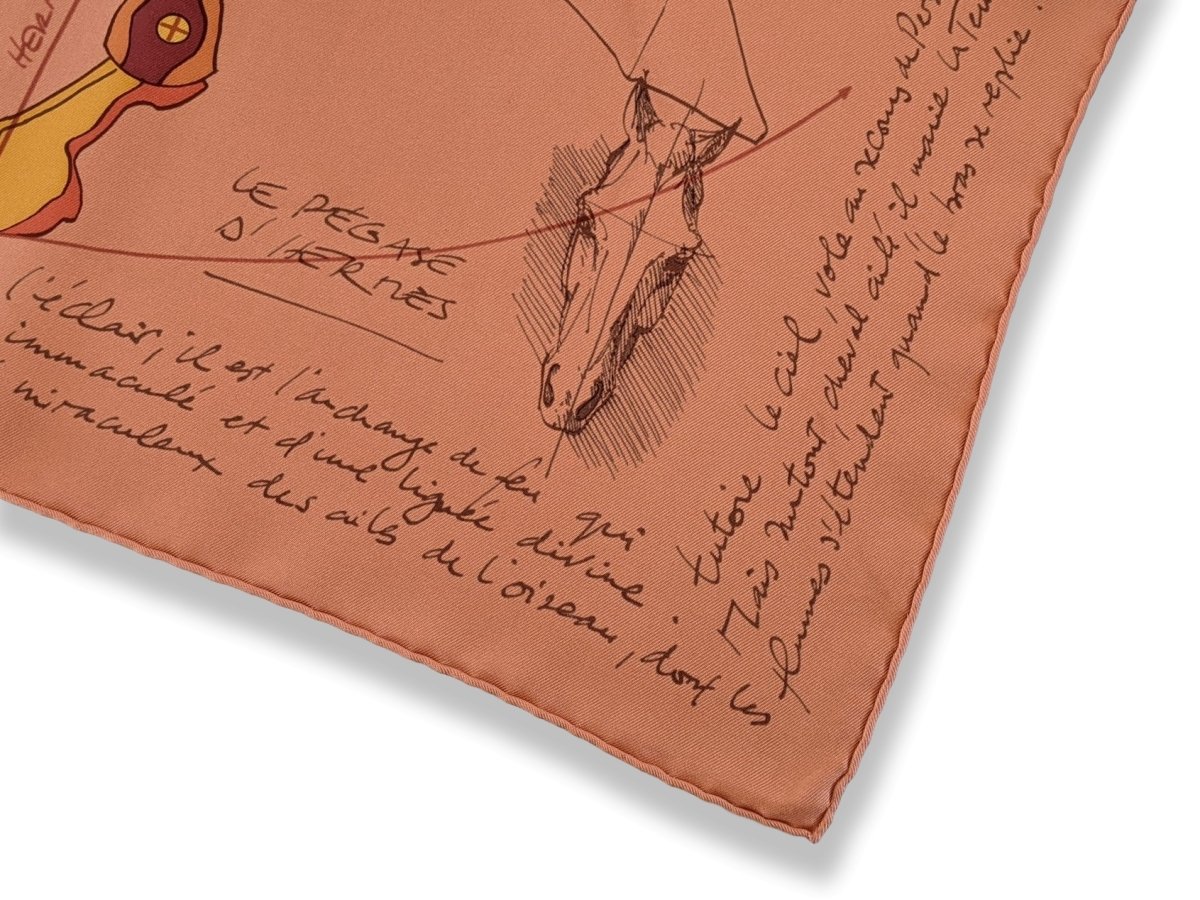 LE PÉGASE
D'HERMÈS
l'éclair, il est l'archange de feu qui
immaculé et d'une lignée divine.
miraculeux des ailes de l'oiseau, dont les
tutoie le ciel vole au secours de
Mais surtout cheval ailé il marie la
plumes s'étendent quand le bras se replie.